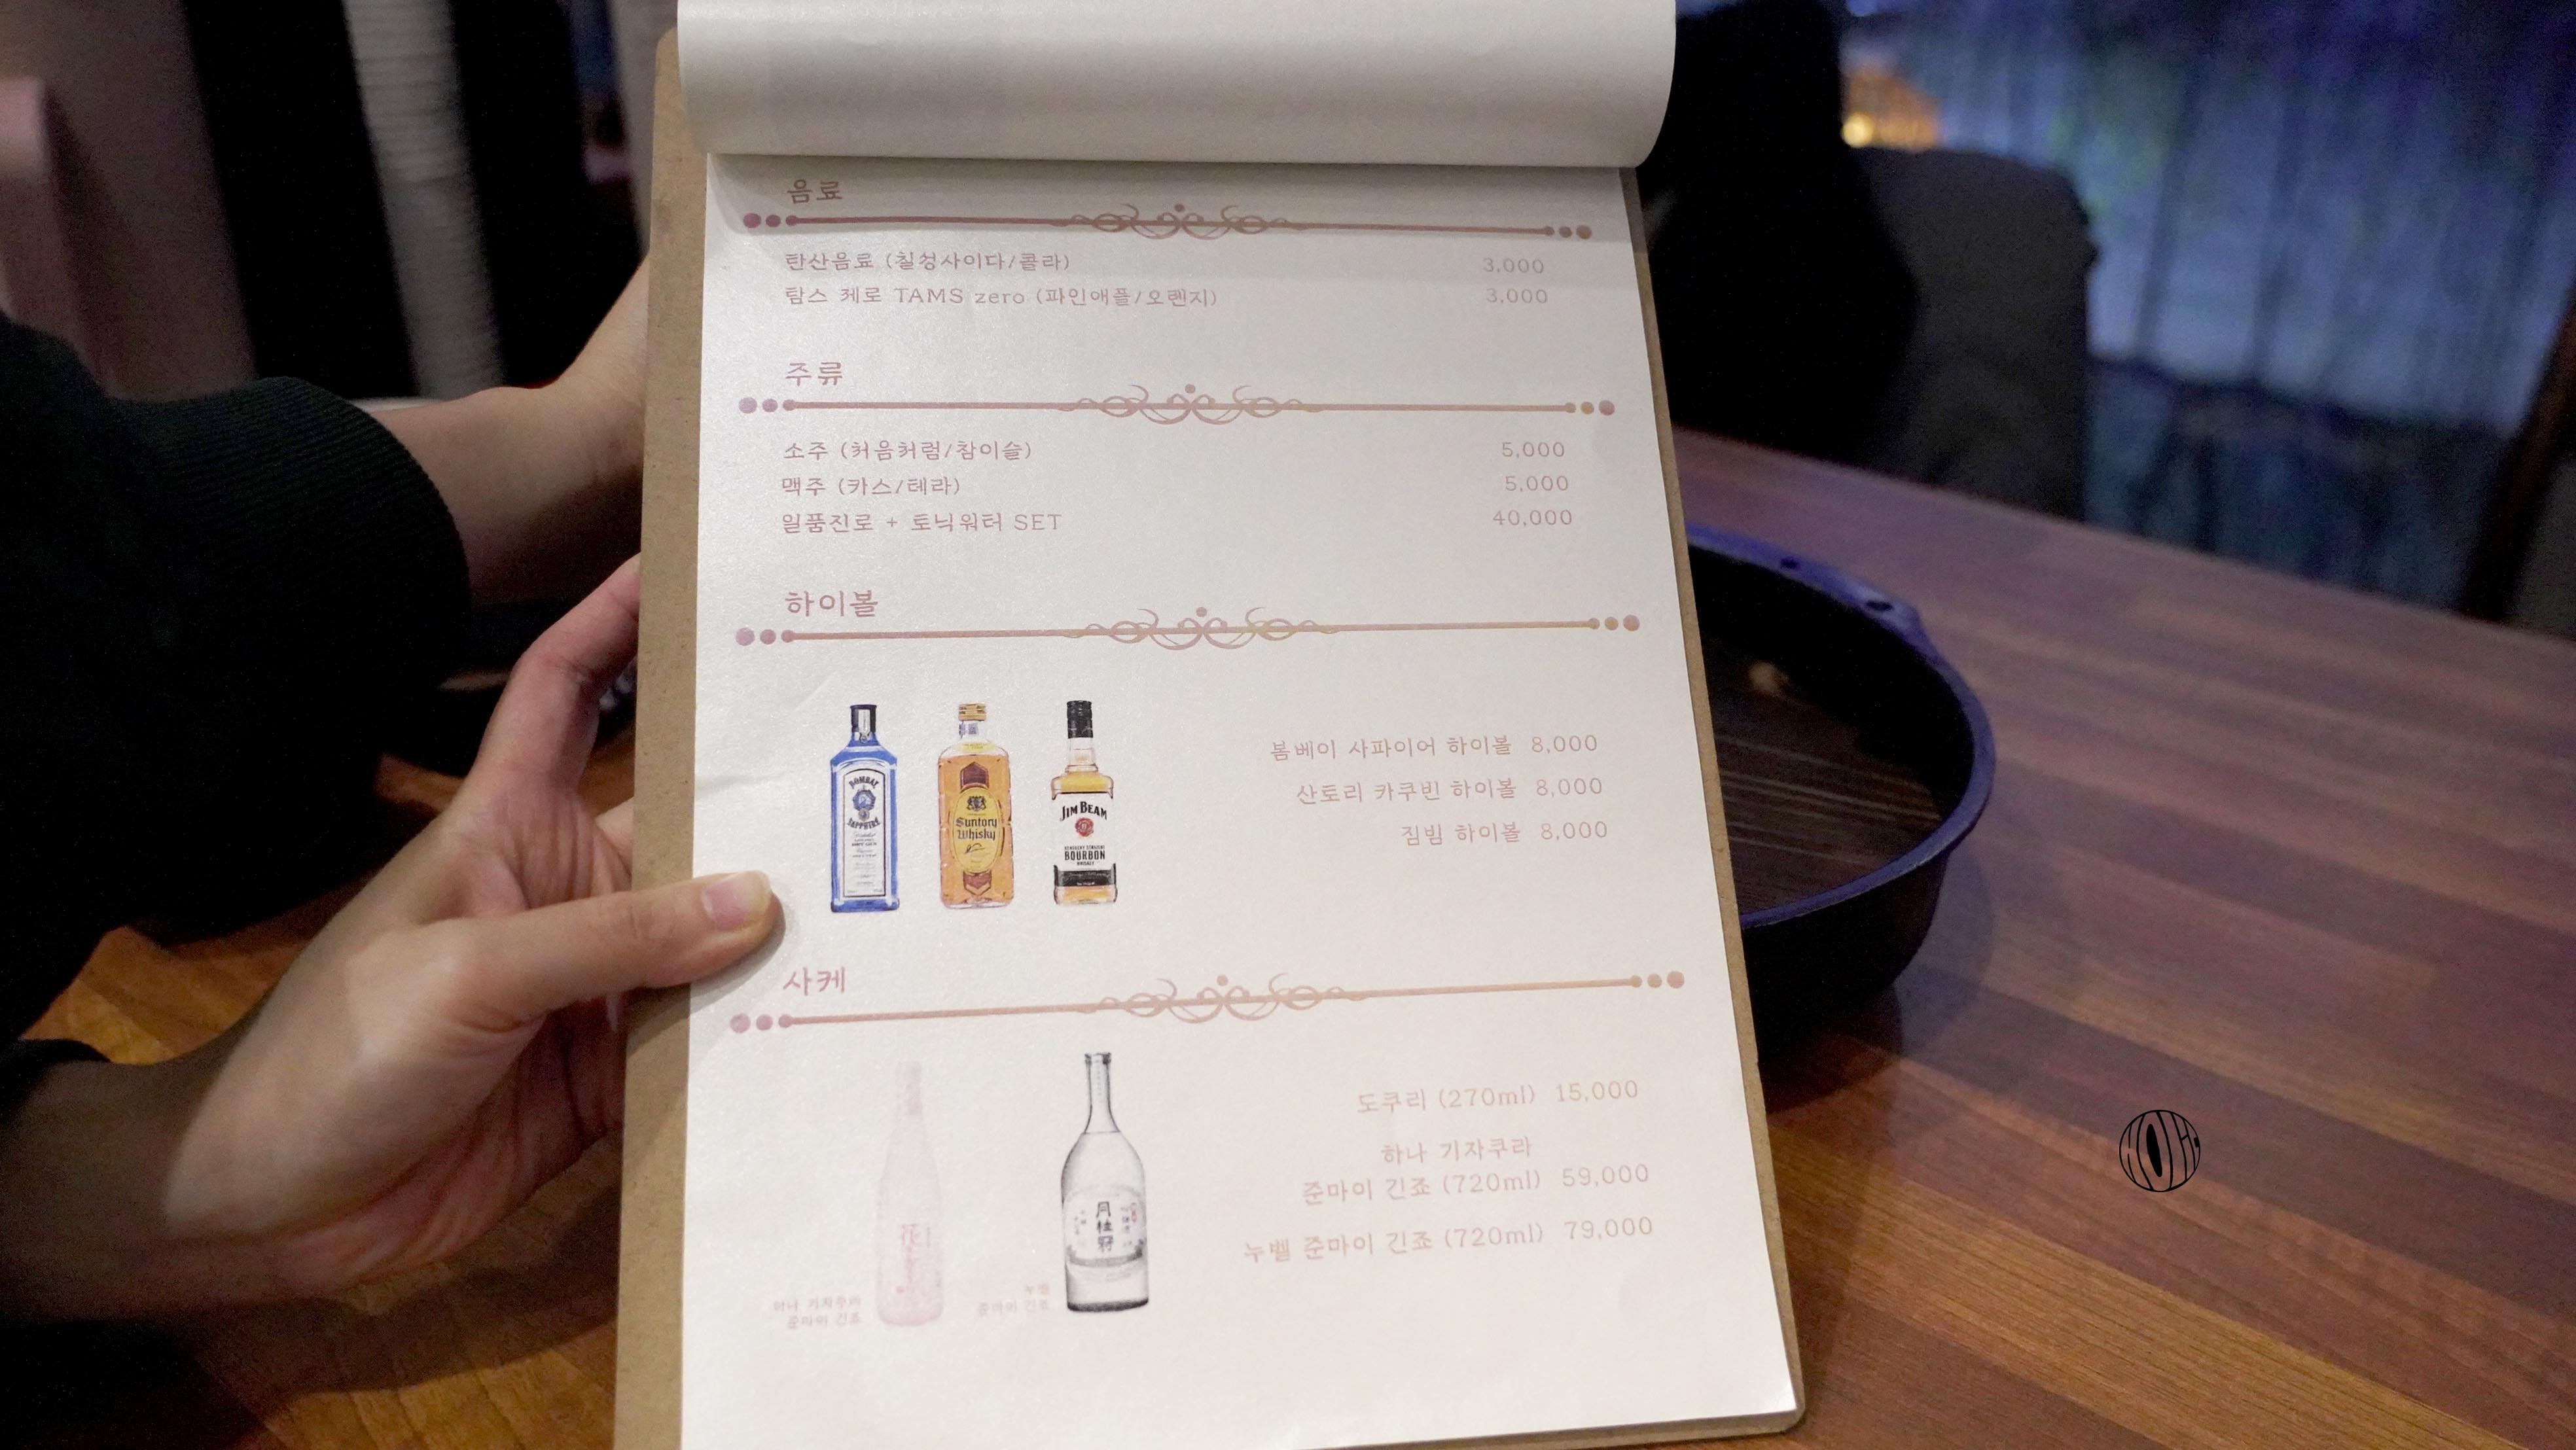 음료
탄산음료 (칠성사이다/콜라) 3,000
탐스 제로 TAMS zero (파인애플/오렌지) 3,000
주류
소주 (처음처럼/참이슬) 5,000
맥주 (카스/테라) 5,000
일품진로 + 토닉워터 SET 40,000
하이볼
BOMBAY
SAPPHIRE
Suntory
Whisky
JIM BEAM
KENTUCKY STRAIGHT
BOURBON
WHISKEY
봄베이 사파이어 하이볼 8,000
산토리 카쿠빈 하이볼 8,000
짐빔 하이볼 8,000
사케
月桂冠
도쿠리 (270ml) 15,000
하나 기자쿠라
준마이 긴죠 (720ml) 59,000
누벨 준마이 긴죠 (720ml) 79,000
하나 기자쿠라
준마이 긴죠
누벨
준마이 긴죠